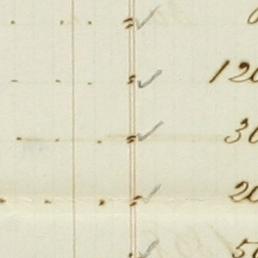 " ✓
. . . " ✓ 120
. . . " ✓ 30
. . . " ✓ 20
" ✓ 50